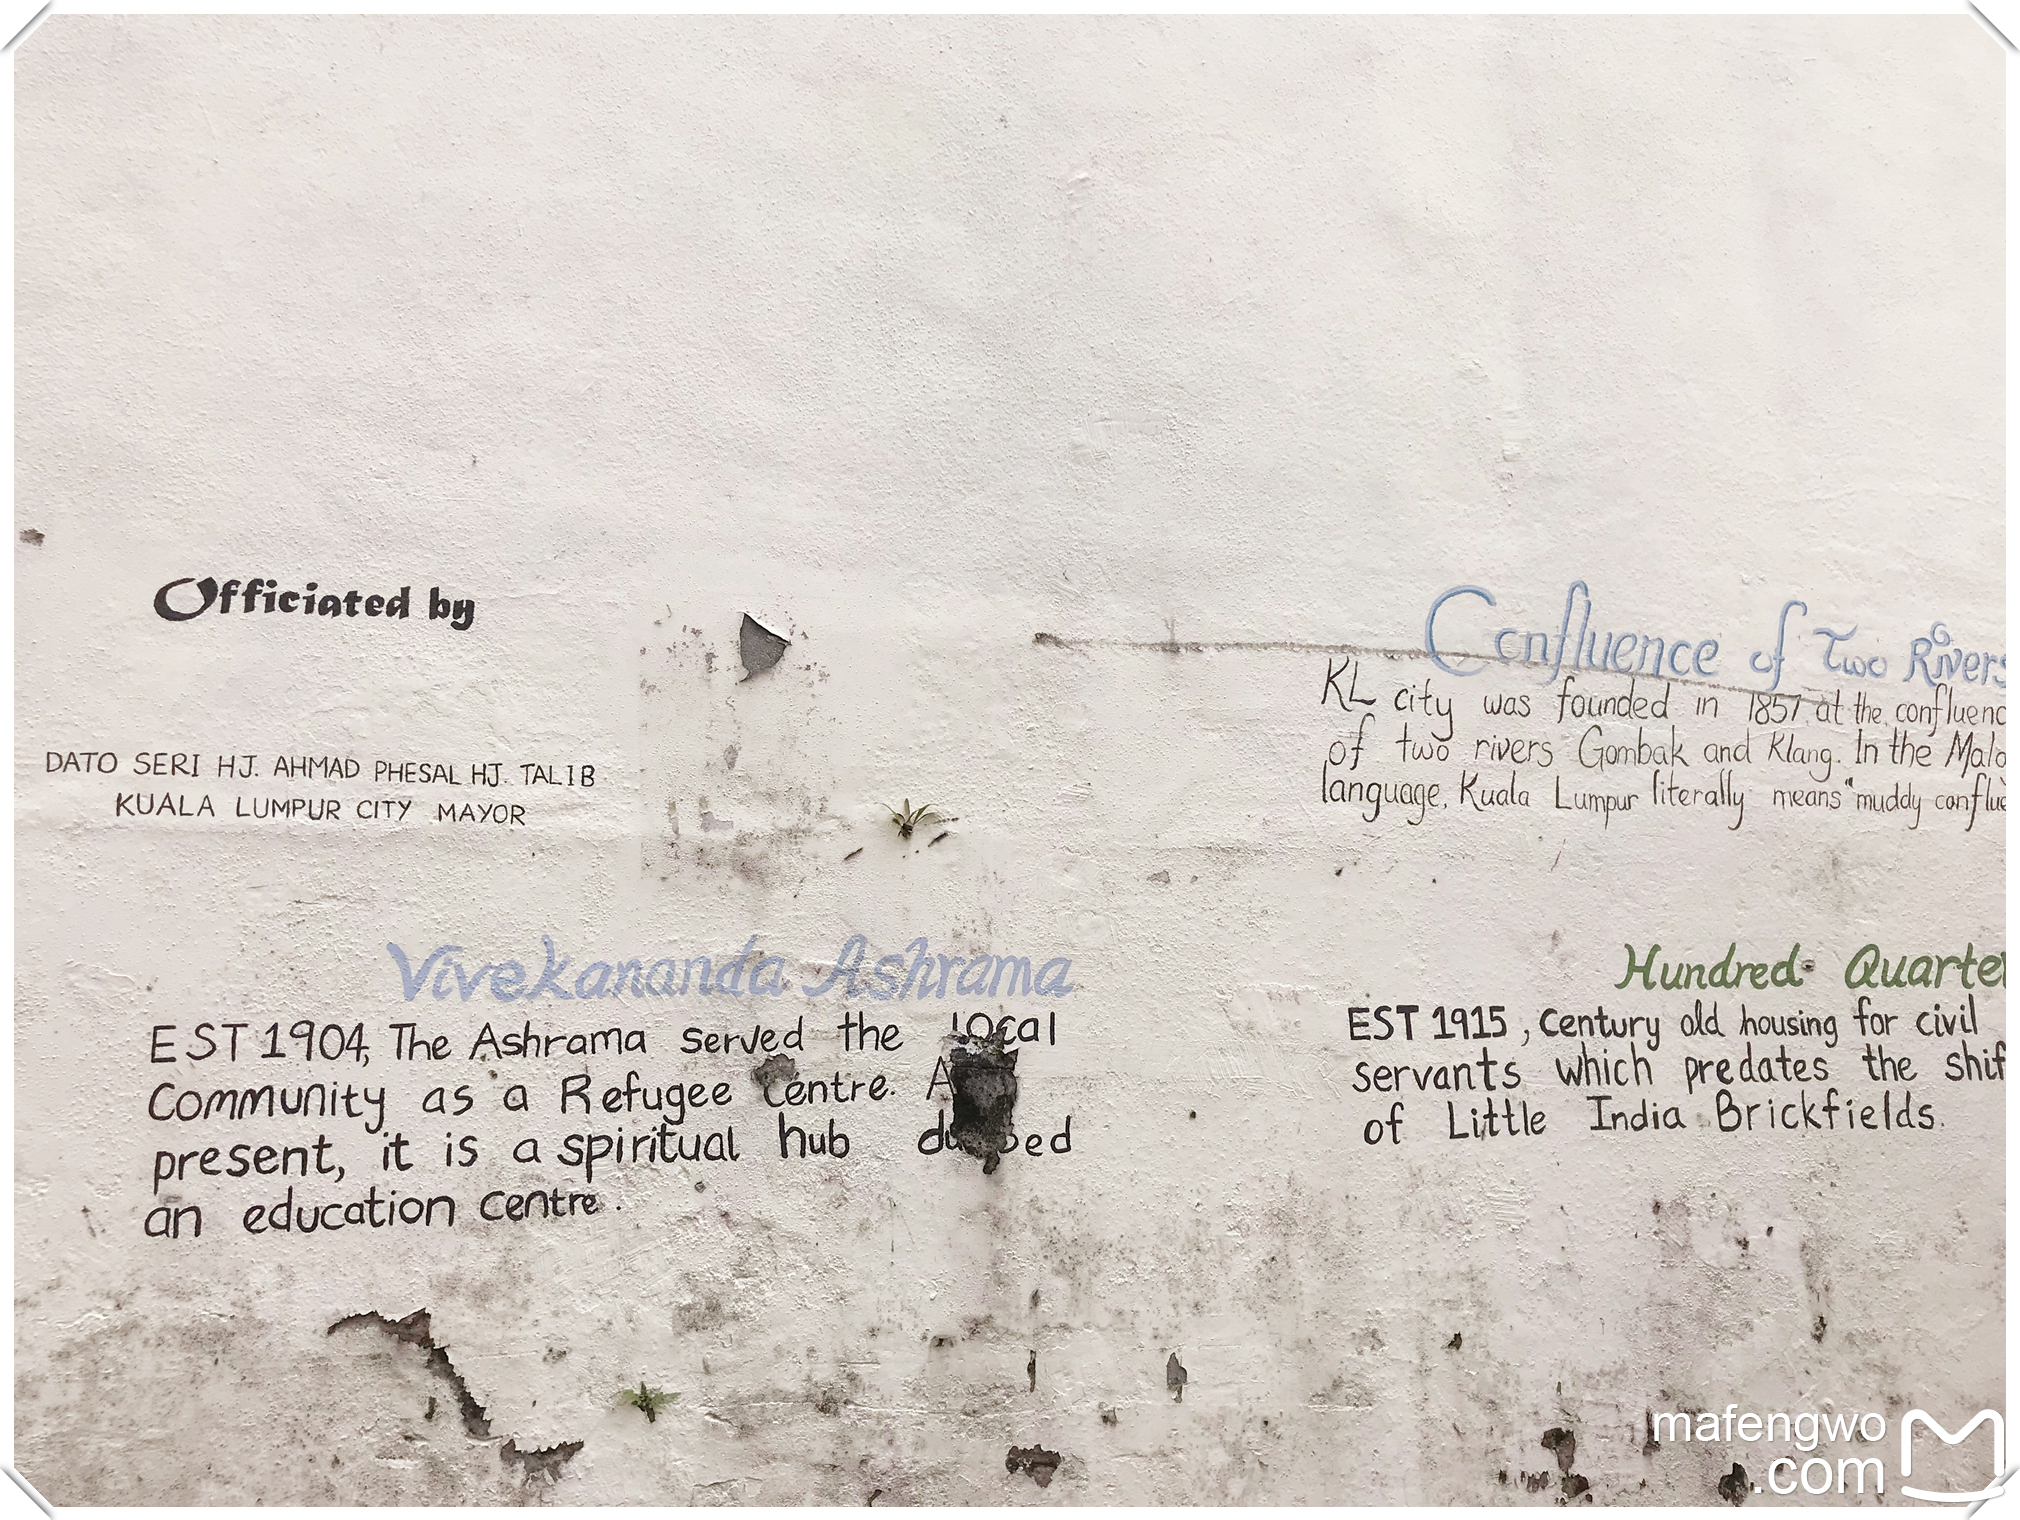 Officiated by
DATO SERI HJ. AHMAD PHESAL HJ. TALIB
KUALA LUMPUR CITY MAYOR
Vivekananda Ashrama
EST 1904, The Ashrama served the local
Community as a Refugee Centre.
present, it is a spiritual hub
an education centre.
Confluence of Two Rivers
KL city was founded in 1857 at the confluenc
of two rivers Gombak and Klang. In the Mala
language, Kuala Lumpur literally means "muddy conflue
Hundred Quarter
EST 1915, Century old housing for civil
servants which predates the shif
of Little India Brickfields.
mafengwo
.com